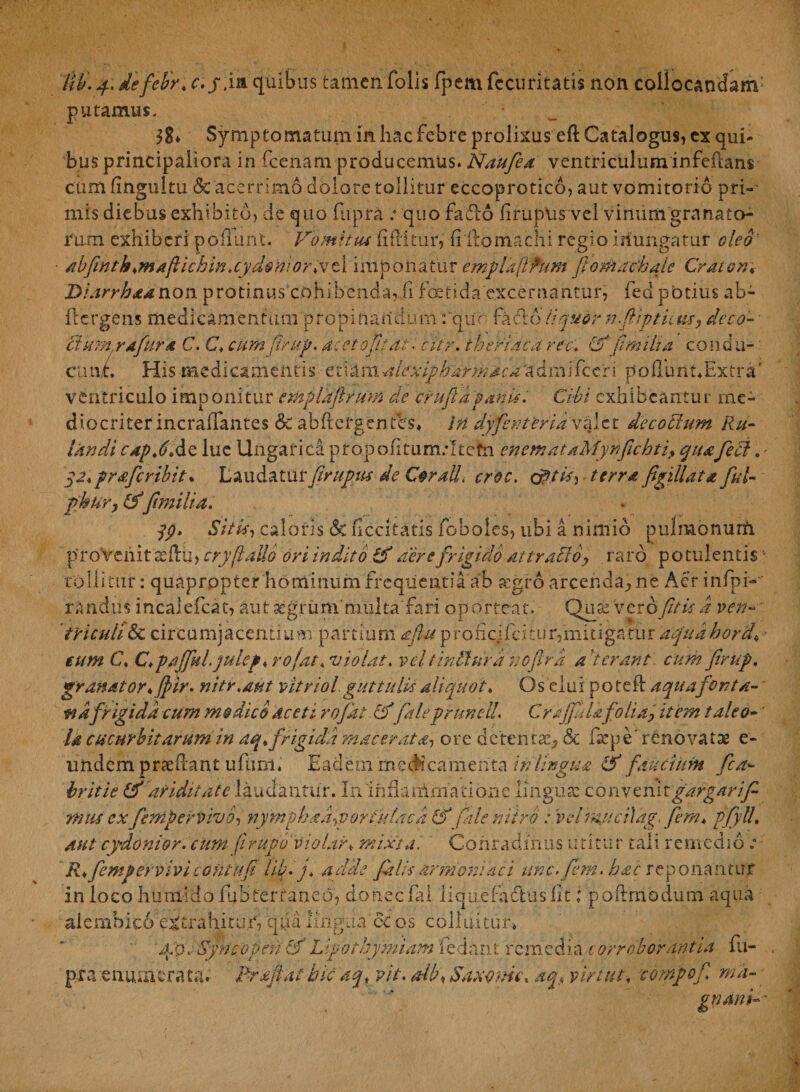 lib. 4. de febr. c. 5. in quibus tamen folis fpem fecuritatis non collocandam
putamus.
38. Symptomatum in hac febre prolixus eft Catalogus, ex qui-
bus principaliora in fcenam producemus. Naufea ventriculum infeftans
cum fingultu & acerrimô dolore tollitur eccoproticô, aut vomitoriô pri-
mis diebus exhibitô, de quo fupra : quo factô firupus vel vinum granato-
rum exhiberi poffunt. Vomitus fiftitur, fi ftomachi regio inungatur oleô
abfinth. maftichin. cydonior. vel imponatur emplaftrum ftomachale Craton.
Diarrhæa non protinus cohibenda, fi fœtida excernantur, fed potius ab-
ftergens medicamentum propinandum : quo factô liquor n. ftipticus, deco-
ctum rafura C. C. cum firup. acetofitat. citr. theriaca rec. & fimilia condu-
cunt. His medicamentis etiam alexipharmaca admifceri poffunt. Extra
ventriculo imponitur emplaftrum de crufta panis. Cibi exhibeantur me-
diocriter incraffantes & abftergentes. In dyfenteria valet decoctum Ru-
landi cap. 6. de lue Ungarica propofitum: Item enemata Mynfichti, quæ fect.
32. præfcribit. Laudatur firupus de Corall. croc. ♂tis, terræ figillatæ ful-
phur, & fimilia.
39. Sitis, caloris & ficcitatis foboles, ubi â nimiô pulmonum
provenit æftu, cryftallô ori inditô & aëre frigidô attractô, rarô potulentis
tollitur : quapropter hominum frequentia ab ægrô arcenda, ne Aër infpi-
randus incalefcat, aut ægrum multa fari oporteat. Quæ verô fitis â ven-
triculi & circumjacentium partium æftu proficifcitur, mitigatur aquâ hord.
cum C. C. paffful. julep. rofat. violat. vel tinctura noftra alterant. cum firup.
granator. fpir. nitr. aut vitriol. guttulis aliquot. Os elui poteft aqua fonta-
nâ frigidâ cum modicô aceti rofat & fale prunell. Craffulæ folia, item taleo-
læ cucurbitarum in aq. frigidâ maceratæ, ore detentæ, & fæpe renovatæ e-
undem præftant ufum. Eadem medicamenta in linguæ & faucium fca-
britie & ariditate laudantur. In inflammatione linguæ convenit gargarif-
mus ex fempervivô, nymphæâ, portulacâ & fale nitrô : vel mucilag. fem. pfyll.
aut cydonior. cum firupô violar. mixta. Conradinus utitur tali remediô :
R. fempervivi contufi lib. j. adde falis armoniaci unc. fem. hæc reponantur
in loco humido fubterraneô, donec fal liquefactus fit ; poftmodum aqua
alembicô extrahitur, quâ lingua & os colluitur.
40. Syncopen & Lipothymiam fedant remedia corroborantia fu-
pra enumerata. Præftat hic aq. vit. alb. Saxonic. aq. virtut. compof. ma-
gnani-